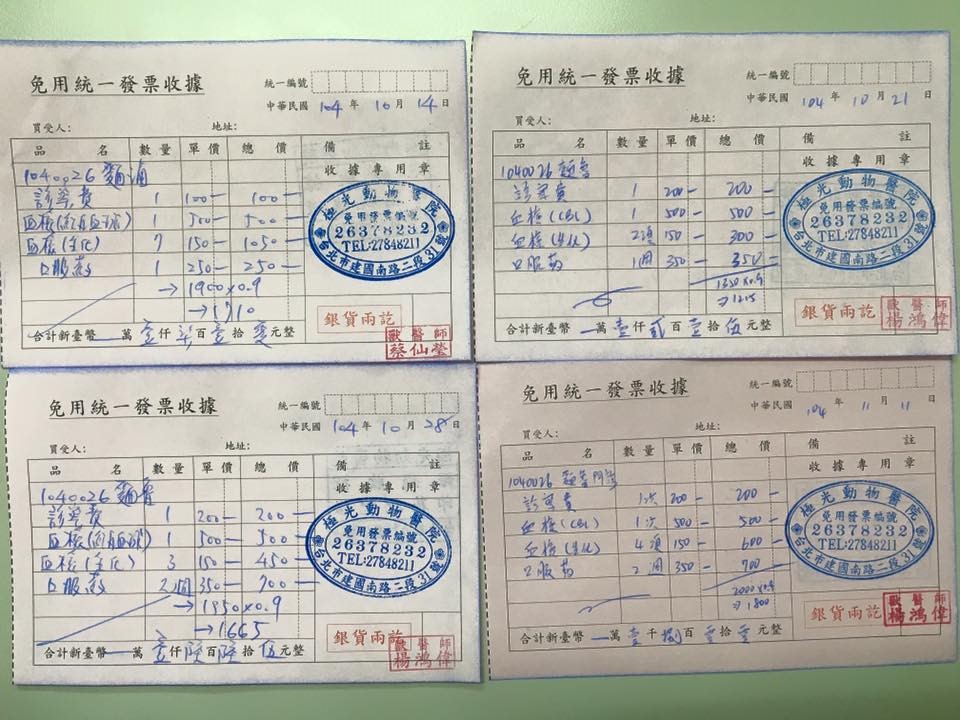 免用統一發票收據
統一編號
中華民國 104 年 10 月 14 日
買受人: 地址:
品 名 數量 單價 總價 備 註
1040026 麵
收據專用章
診察費 1 100— 100—
血檢( 血球) 1 500— 500—
血檢(生化) 7 150— 1050—
口服藥 1 250— 250—
→1900×0.9
→1710
極光動物醫院
免用發票編號
26378232
TEL:27848211
台北市建國南路二段31號
銀貨兩訖
合計新臺幣 萬壹仟柒百壹拾零元整
獸醫師
蔡仙瑩
免用統一發票收據
統一編號
中華民國 104 年 10 月 21 日
買受人: 地址:
品 名 數量 單價 總價 備 註
1040026 麵魯
收據專用章
診察費 1 200— 200—
血檢(CBC) 1 500— 500—
血檢(生化) 2項 150— 300—
口服藥 1週 350— 350—
1350×0.9
→1215
極光動物醫院
免用發票編號
26378232
TEL:27848211
台北市建國南路二段31號
銀貨兩訖
合計新臺幣 萬壹仟貳百壹拾伍元整
獸醫師
楊鴻偉
免用統一發票收據
統一編號
中華民國 104 年 10 月 28 日
買受人: 地址:
品 名 數量 單價 總價 備 註
1040026 麵魯
收據專用章
診察費 1 200— 200—
血檢( 血球) 1 500— 500—
血檢(生化) 3 150— 450—
口服藥 2週 350— 700—
→1850×0.9
→1665
極光動物醫院
免用發票編號
26378232
TEL:27848211
台北市建國南路二段31號
銀貨兩訖
合計新臺幣 萬壹仟陸百陸拾伍元整
獸醫師
楊鴻偉
免用統一發票收據
統一編號
中華民國 104 年 11 月 11 日
買受人: 地址:
品 名 數量 單價 總價 備 註
1040026 麵魯
收據專用章
診察費 1次 200— 200—
血檢(CBC) 1次 500— 500—
血檢(生化) 4項 150— 600—
口服藥 2週 350— 700—
2000×0.9
→1800
極光動物醫院
免用發票編號
26378232
TEL:27848211
台北市建國南路二段31號
銀貨兩訖
合計新臺幣 萬壹千捌百零拾零元整
獸醫師
楊鴻偉